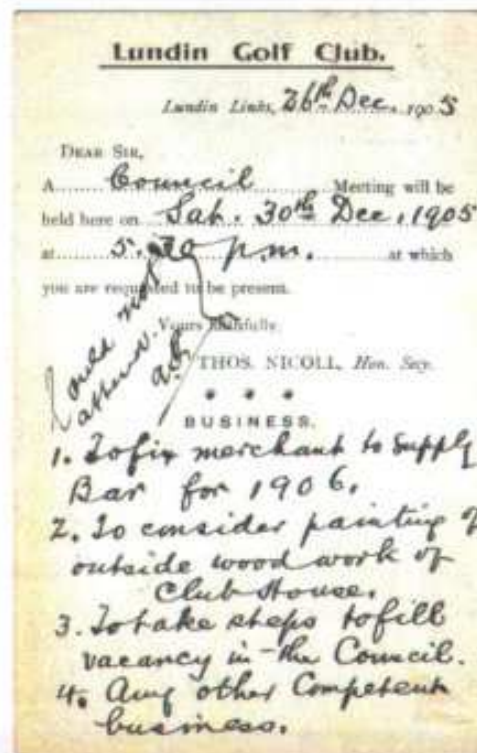 Lundin Golf Club.
Lundin Links, 26th Dec. 1905
DEAR SIR,
A Council Meeting will be
held here on Sat. 30th Dec. 1905
at 5.30 p.m. at which
you are requested to be present.
Yours faithfully,
Could not
attend.
THOS. NICOLL, Hon. Secy.
BUSINESS.
1. To fix merchant to supply
Bar for 1906.
2. To consider painting of
outside wood work of
Club House.
3. To take steps to fill
vacancy in the Council.
4. Any other Competent
business.